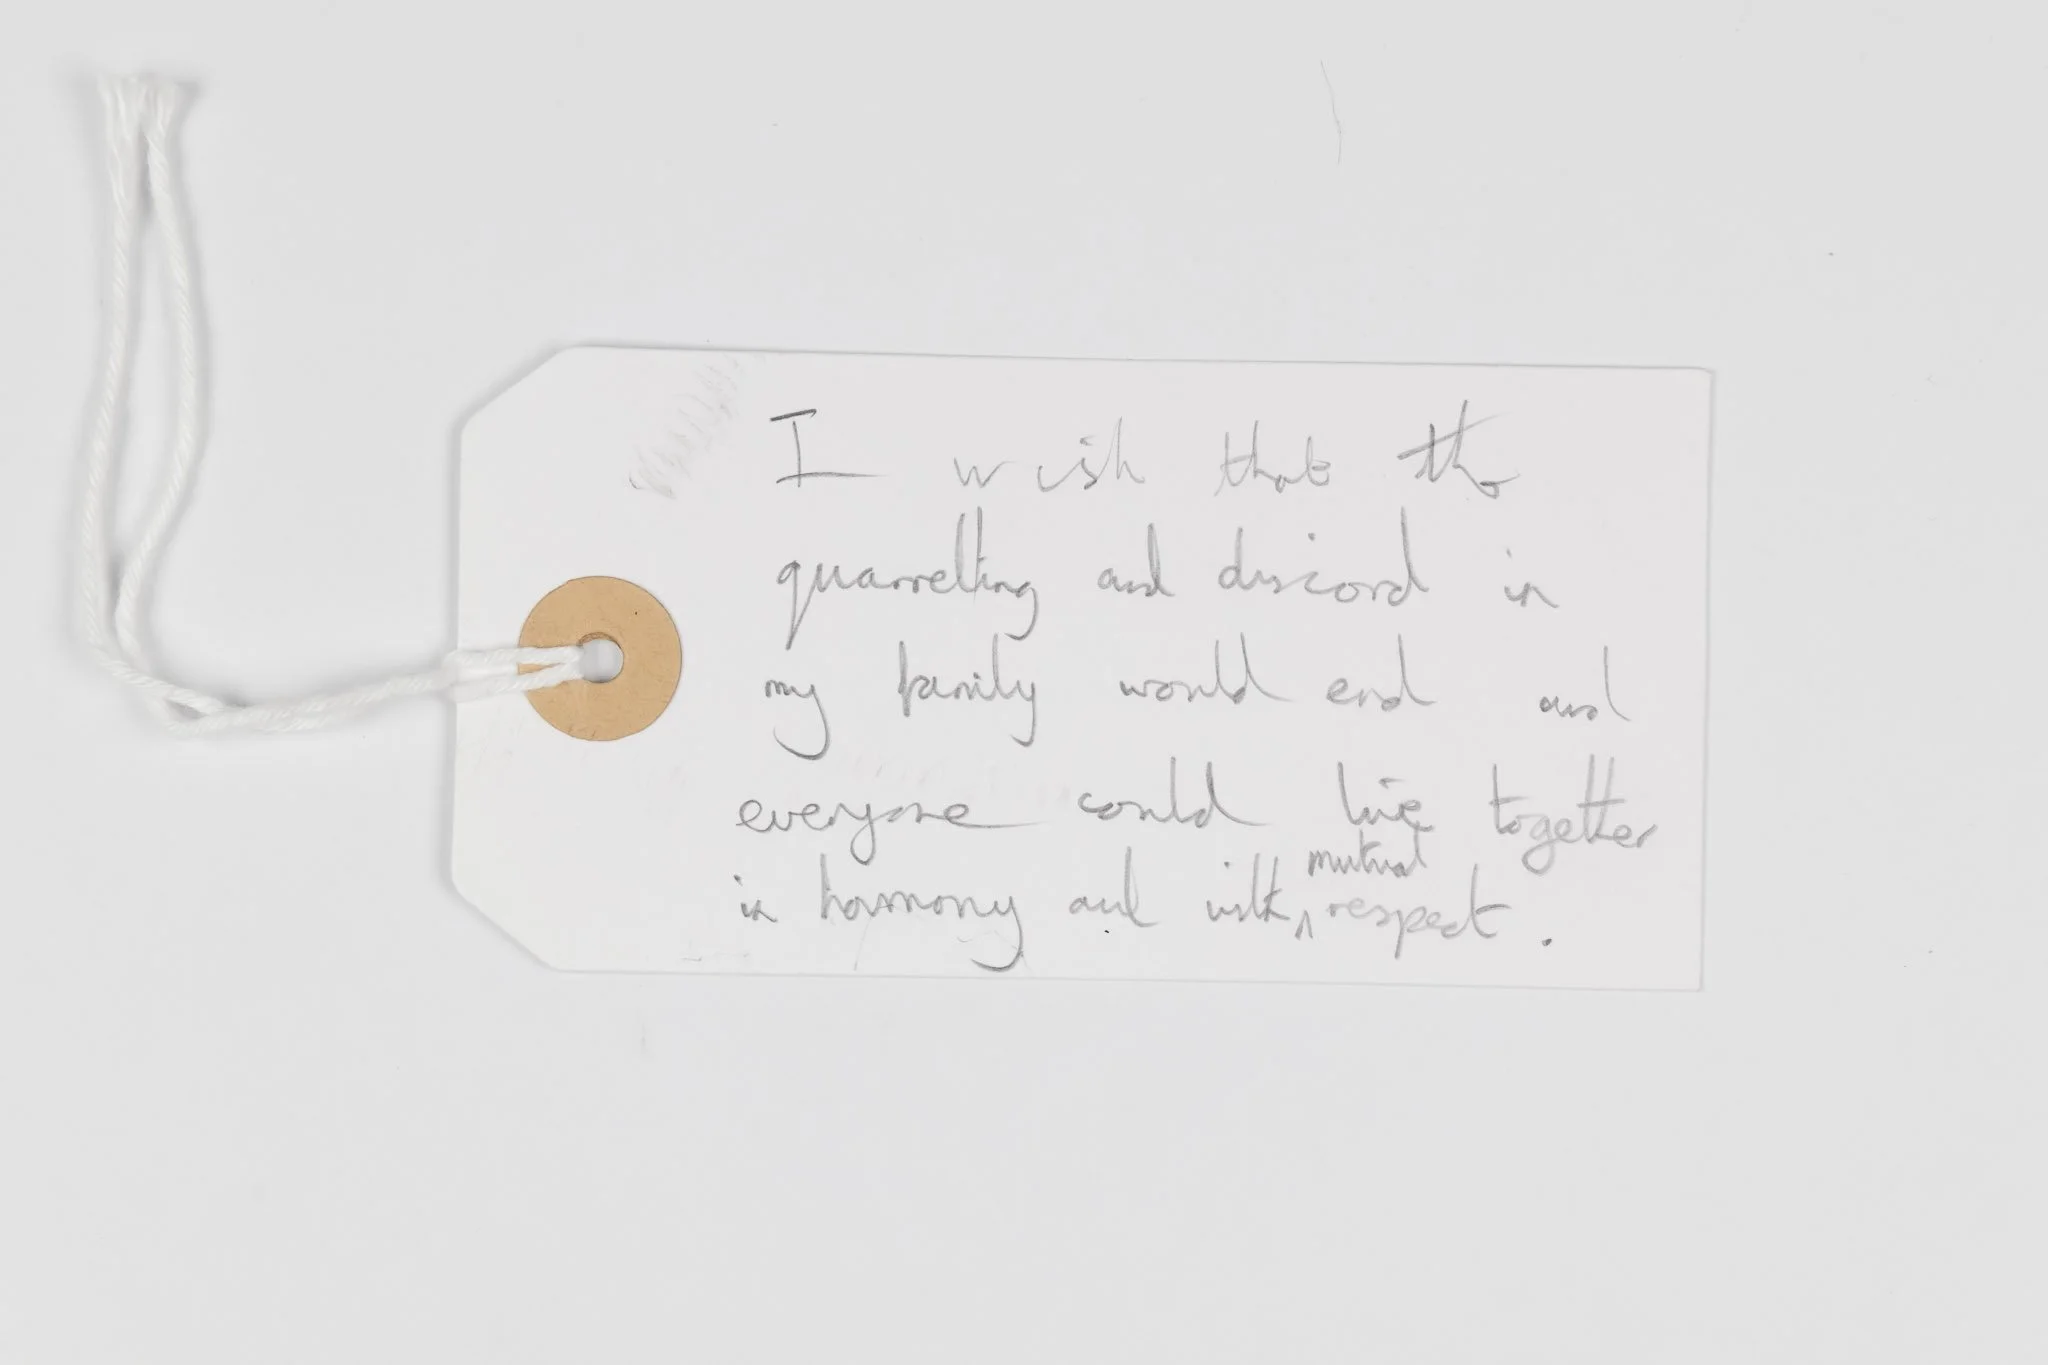 I wish that the
quarrelling and discord in
my family would end and
everyone could live together
in harmony and with ^mutual respect.